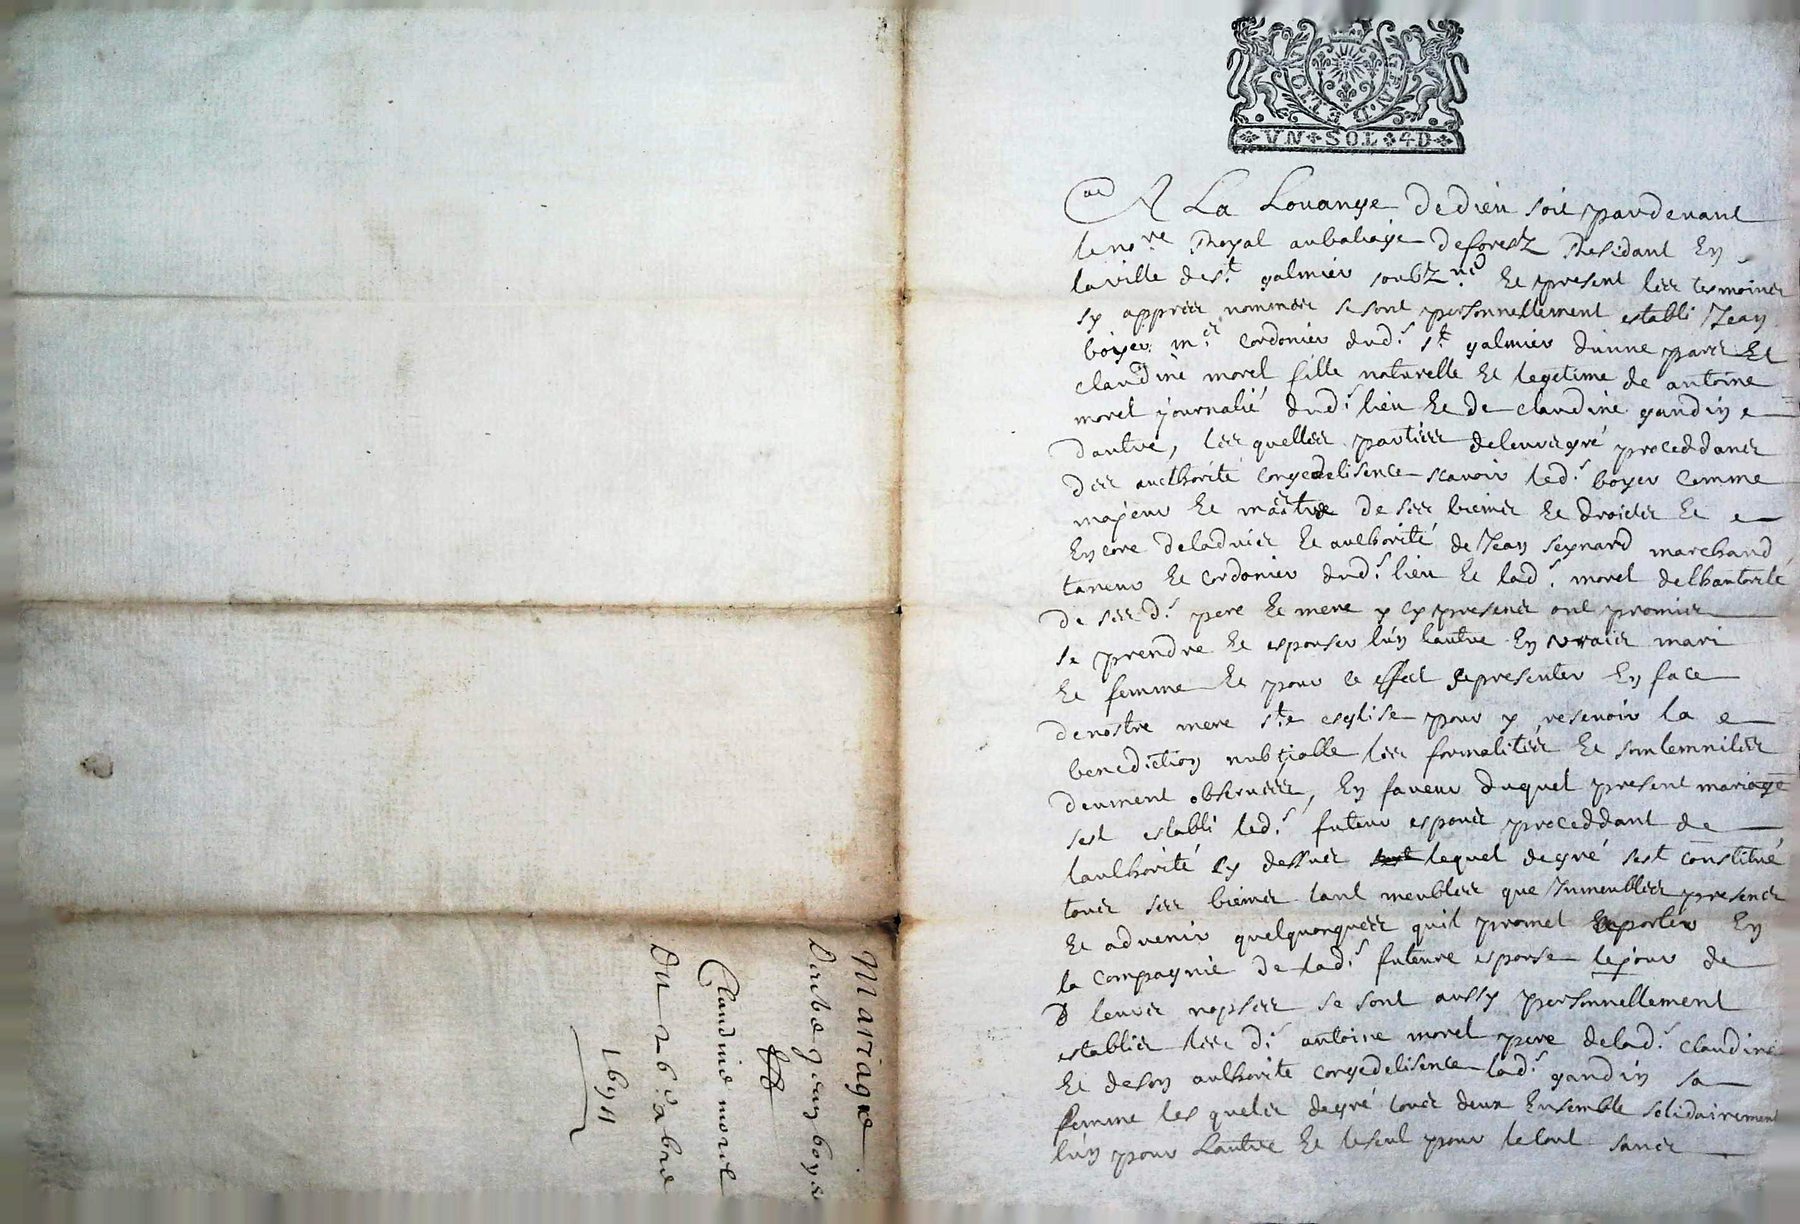 VN SOL 4D
A La Louange de dieu soit pardevant
le no.re Royal au baliage de forestz Residant En
la ville de st. galmier soubz.né Et present les tesmoins
sy appres nommes se sont personnellement establi Jean
boyer m.e cordonier dud.t st. galmier dunne part Et
claudine morel fille naturelle Et legetime de antoine
morel journalié dud.t lieu Et de claudine gandin
dautre, les quelles parties de leurs gré proceddans
des aucthorité conge delisence scavoir led.t boyer comme
majeur Et maistre de ses biems Et droicts Et
Encore de ladvis Et authorité de Jean marchand
taneur Et cordonier dud.t lieu Et lad.t morel de lhautorité
de ses d.t pere Et mere y cy presens ont promis
se prendre Et espouser lun lautre En vrais mari
Et femme Et pour ce effect se presenter En face
de nostre mere ste esglise pour y resevoir la
benediction nubtialle les formalités Et somlemnites
deument observees, En faveur duquel present mariage
sest establi led.t futeur espous proceddant de
laulhorité sy dessus lequel de gré sest constitué
tous ses biems tant meubles que Jmmeubles presens
Et advenir quelquonques quil promet Enporter En
la compagnie de lad.t future espouse le jour de
leurs nopses se sont aussy personnellement
establis les d.t antoine morel pere de lad.t claudine
Et de son authorite conge delisence lad.t gandin sa
femme les quels de gré tous deux Ensemble solidairement
lun pour Lautre Et le seul pour le tout sans
Mariage
Jean boye
Claudine morel
Du 26e abre